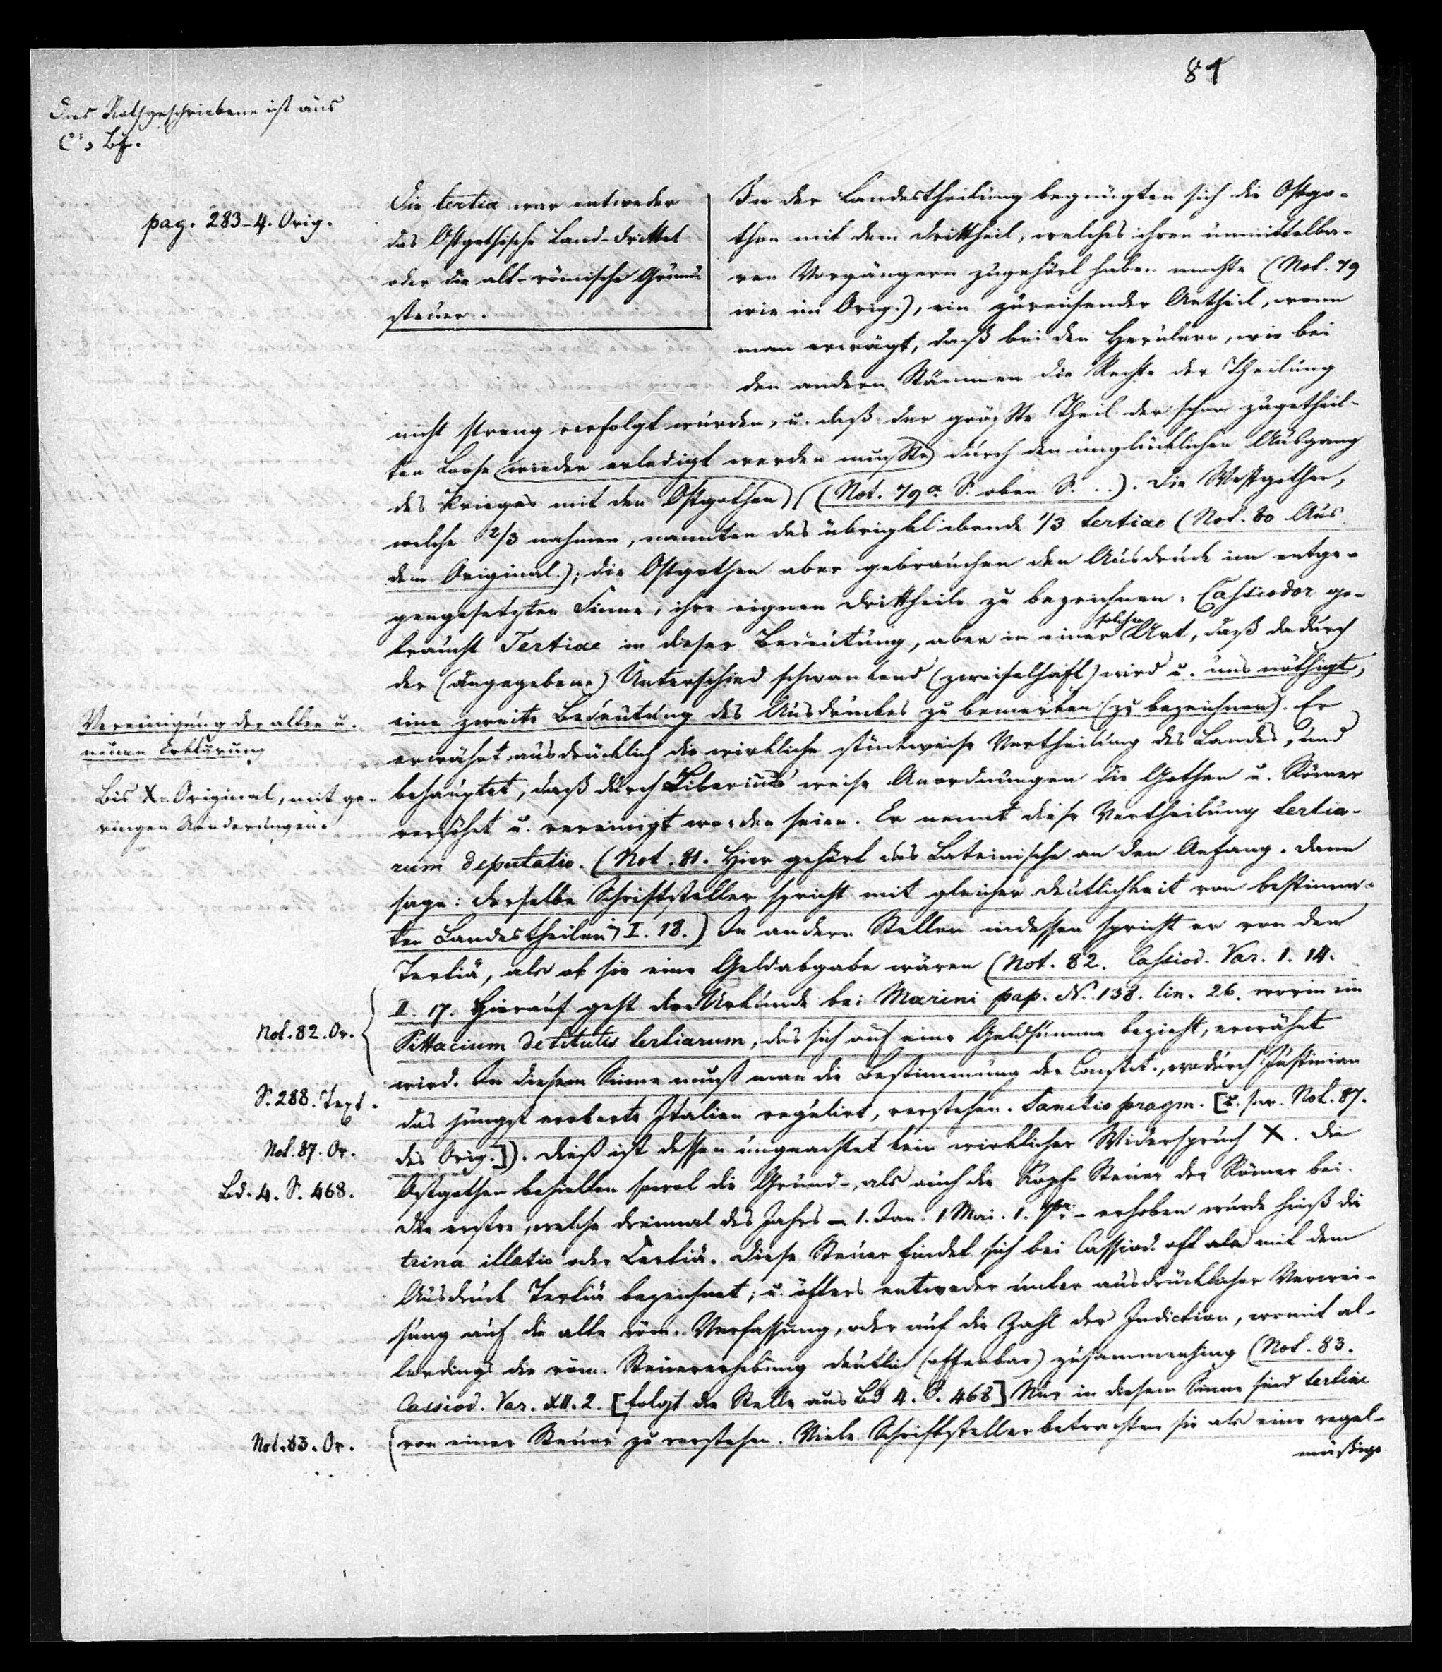 81
Das Rothgeschriebene ist aus
C's Bf.
pag. 283-4. Orig.
Die tertia war entweder
das Ostgothische Land-Drittel
oder die alt-römische Grund-
steuer.
In der Landestheilung begnügten sich die Ostgo-
then mit dem Drittheil, welches ihren unmittelba-
ren Vorgängern zugehört haben mochte (Not. 79
wie im Orig.), ein zureichender Antheil, wenn
man erwägt, daß bei den Herulern, wie bei
den andern Stämmen die Rechte der Theilung
nicht streng verfolgt wurden, u. daß der größte Theil der schon zugetheil-
ten Loose wieder erledigt werden mußte durch den unglücklichen Ausgang
des Krieges mit den Ostgothen (Not. 79a. S. oben S. . .). Die Westgothen,
welche 2/3 nahmen, nannten das übrigbleibende 1/3 tertiae (Not. 80 Aus
dem Original.); die Ostgothen aber gebrauchen den Ausdruck im entge-
gengesetzten Sinne, ihre eignen Drittheile zu bezeichnen. Cassiodor ge-
braucht Tertiae in dieser Bedeutung, aber in einer solchen Art, daß dadurch
der (angegebene) Unterschied schwankend (zweifelhaft) wird u. uns nöthigt,
Vereinigung der alten u.
neuen Erklärung
eine zweite Bedeutung des Ausdruckes zu bemerken (zu bezeichnen). Er
erwähnt ausdrücklich die wirkliche stückweise Vertheilung des Landes, und
Bis X. Original, mit ge-
ringen Aenderungen.
behauptet, daß durch Liberius weise Anordnungen die Gothen u. Römer
versöhnt u. vereinigt worden seien. Er nennt diese Vertheilung tertia-
rum deputatio. (Not. 81. Hier gehört das Lateinische an den Anfang. Dann
sage: derselbe Schriftsteller spricht mit gleicher Deutlichkeit von bestimm-
ten Landestheilen I. 18.) In andern Stellen indessen spricht er von den
Tertiä, als ob sie eine Geldabgabe wären (Not. 82. Cassiod. Var. 1. 14.
Not. 82. Or.
II. 17. Hierauf geht die Urkunde bei Marini pap. N. 138. lin. 26. worin ein
Pittacium de titulis tertiarum, das sich auf eine Geldsumme bezieht, erwähnt
wird. In diesem Sinne muß man die Bestimmung der Constit., wodurch Justinian
S. 288. Text.
das jüngst eroberte Italien regulirt, verstehen. Sanctio pragm. [u. s. w. Not. 87.
Not. 87. Or.
des Orig.]). Dieß ist dessen ungeachtet kein wirklicher Widerspruch X. Die
Bd. 4. S. 468.
Ostgothen behielten sowol die Grund-, als auch die Kopf-Steuer der Römer bei.
Die erstre, welche dreimal des Jahrs - 1. Jan. 1 Mai. 1. 7br. - erhoben wurde hieß die
trina illatio oder Tertiä. Diese Steuer findet sich bei Cassiod. oft als mit dem
Ausdruck Tertiä bezeichnet; u. öfters entweder unter ausdrücklicher Verwei-
sung auf die alte röm. Verfassung, oder auf die Zahl der Indiction, womit al-
lerdings die röm. Steuererhebung deutlich (offenbar) zusammenhing (Not. 83.
Cassiod. Var. XII. 2. [folgt die Stelle aus Bd 4. S. 468] Nur in diesem Sinne sind tertiae
Not. 83. Or.
(von einer Steuer zu verstehen. Viele Schriftsteller betrachten sie als eine regel-
mäßige